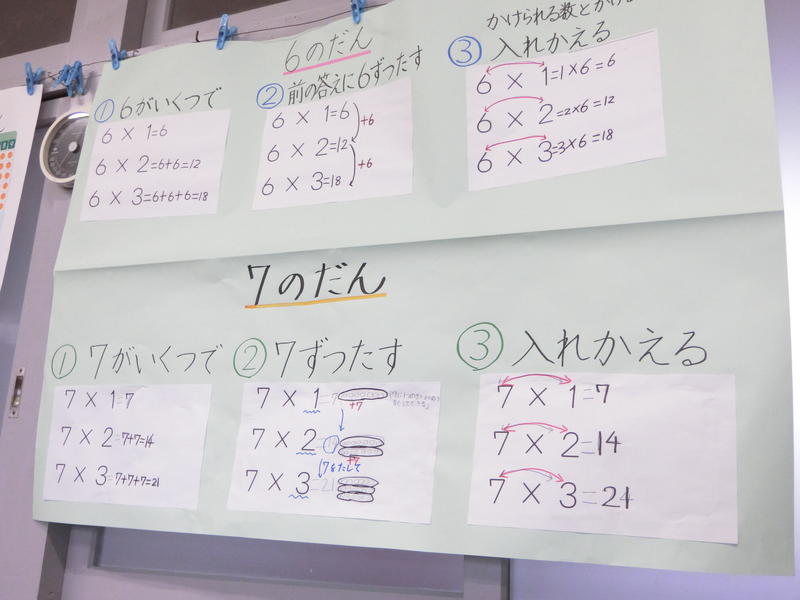 6のだん
①6がいくつで
6×1=6
6×2=6+6=12
6×3=6+6+6=18
②前の答えに6ずつたす
6×1=6
+6
6×2=12
+6
6×3=18
かけられる数とかけ
③入れかえる
6×1=1×6=6
6×2=2×6=12
6×3=3×6=18
7のだん
①7がいくつで
7×1=7
7×2=7+7=14
7×3=7+7+7=21
②7ずつたす
7×1=7
+7
7×2=14
+7
7をたして
7×3=21
③入れかえる
7×1=7
7×2=14
7×3=21